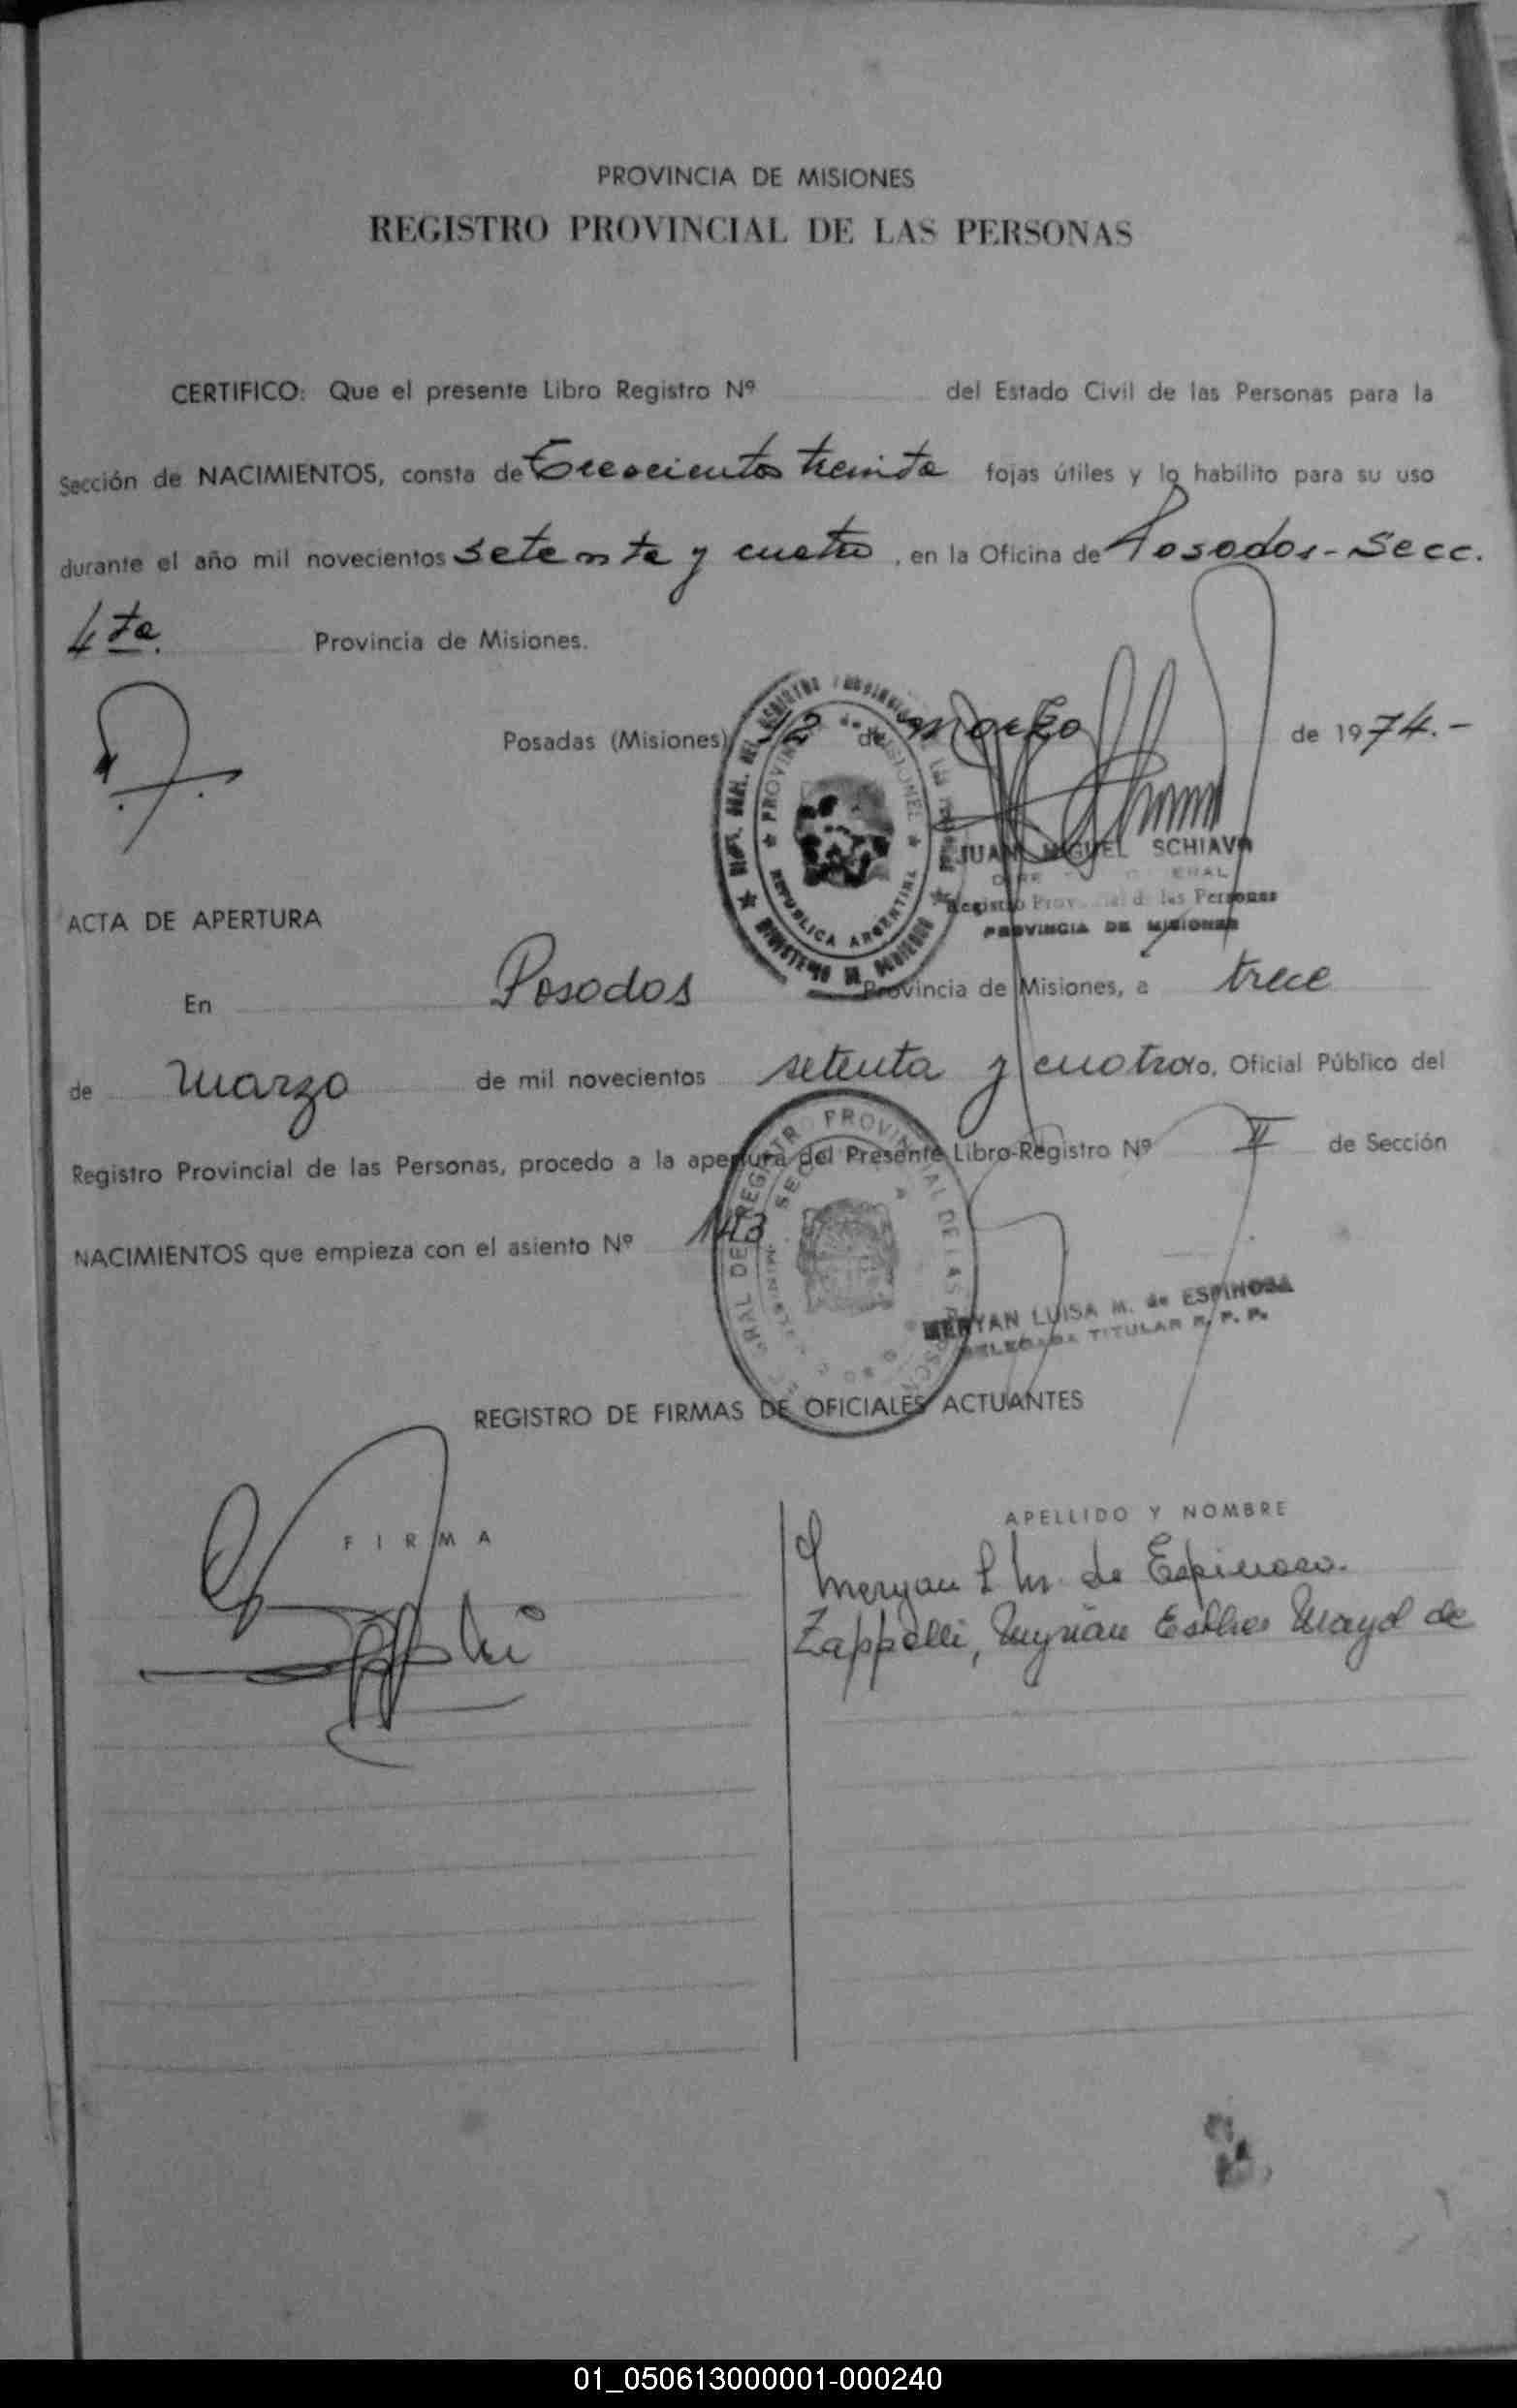 PROVINCIA DE MISIONES
REGISTRO PROVINCIAL DE LAS PERSONAS
CERTIFICO: Que el presente Libro Registro Nº del Estado Civil de las Personas para la
Sección de NACIMIENTOS, consta de Trescientos treinta fojas útiles y lo habilito para su uso
durante el año mil novecientos setenta y cuatro, en la Oficina de Posadas - Secc.
4ta. Provincia de Misiones.
Posadas (Misiones) 12 de marzo de 1974.-
JUAN MIGUEL SCHIAVO
Registro Provincial de las Personas
PROVINCIA DE MISIONES
ACTA DE APERTURA
En Posadas Provincia de Misiones, a trece
de marzo de mil novecientos setenta y cuatro yo, Oficial Público del
Registro Provincial de las Personas, procedo a la apertura del Presente Libro-Registro Nº II de Sección
NACIMIENTOS que empieza con el asiento Nº 143
MERYAN LUISA M. de ESPINOSA
DELEGADA TITULAR R. P. P.
REGISTRO DE FIRMAS DE OFICIALES ACTUANTES
FIRMA
APELLIDO Y NOMBRE
Meryan L M. de Espinosa.
Zappelli, Myrian Esther Mayol de
01_050613000001-000240